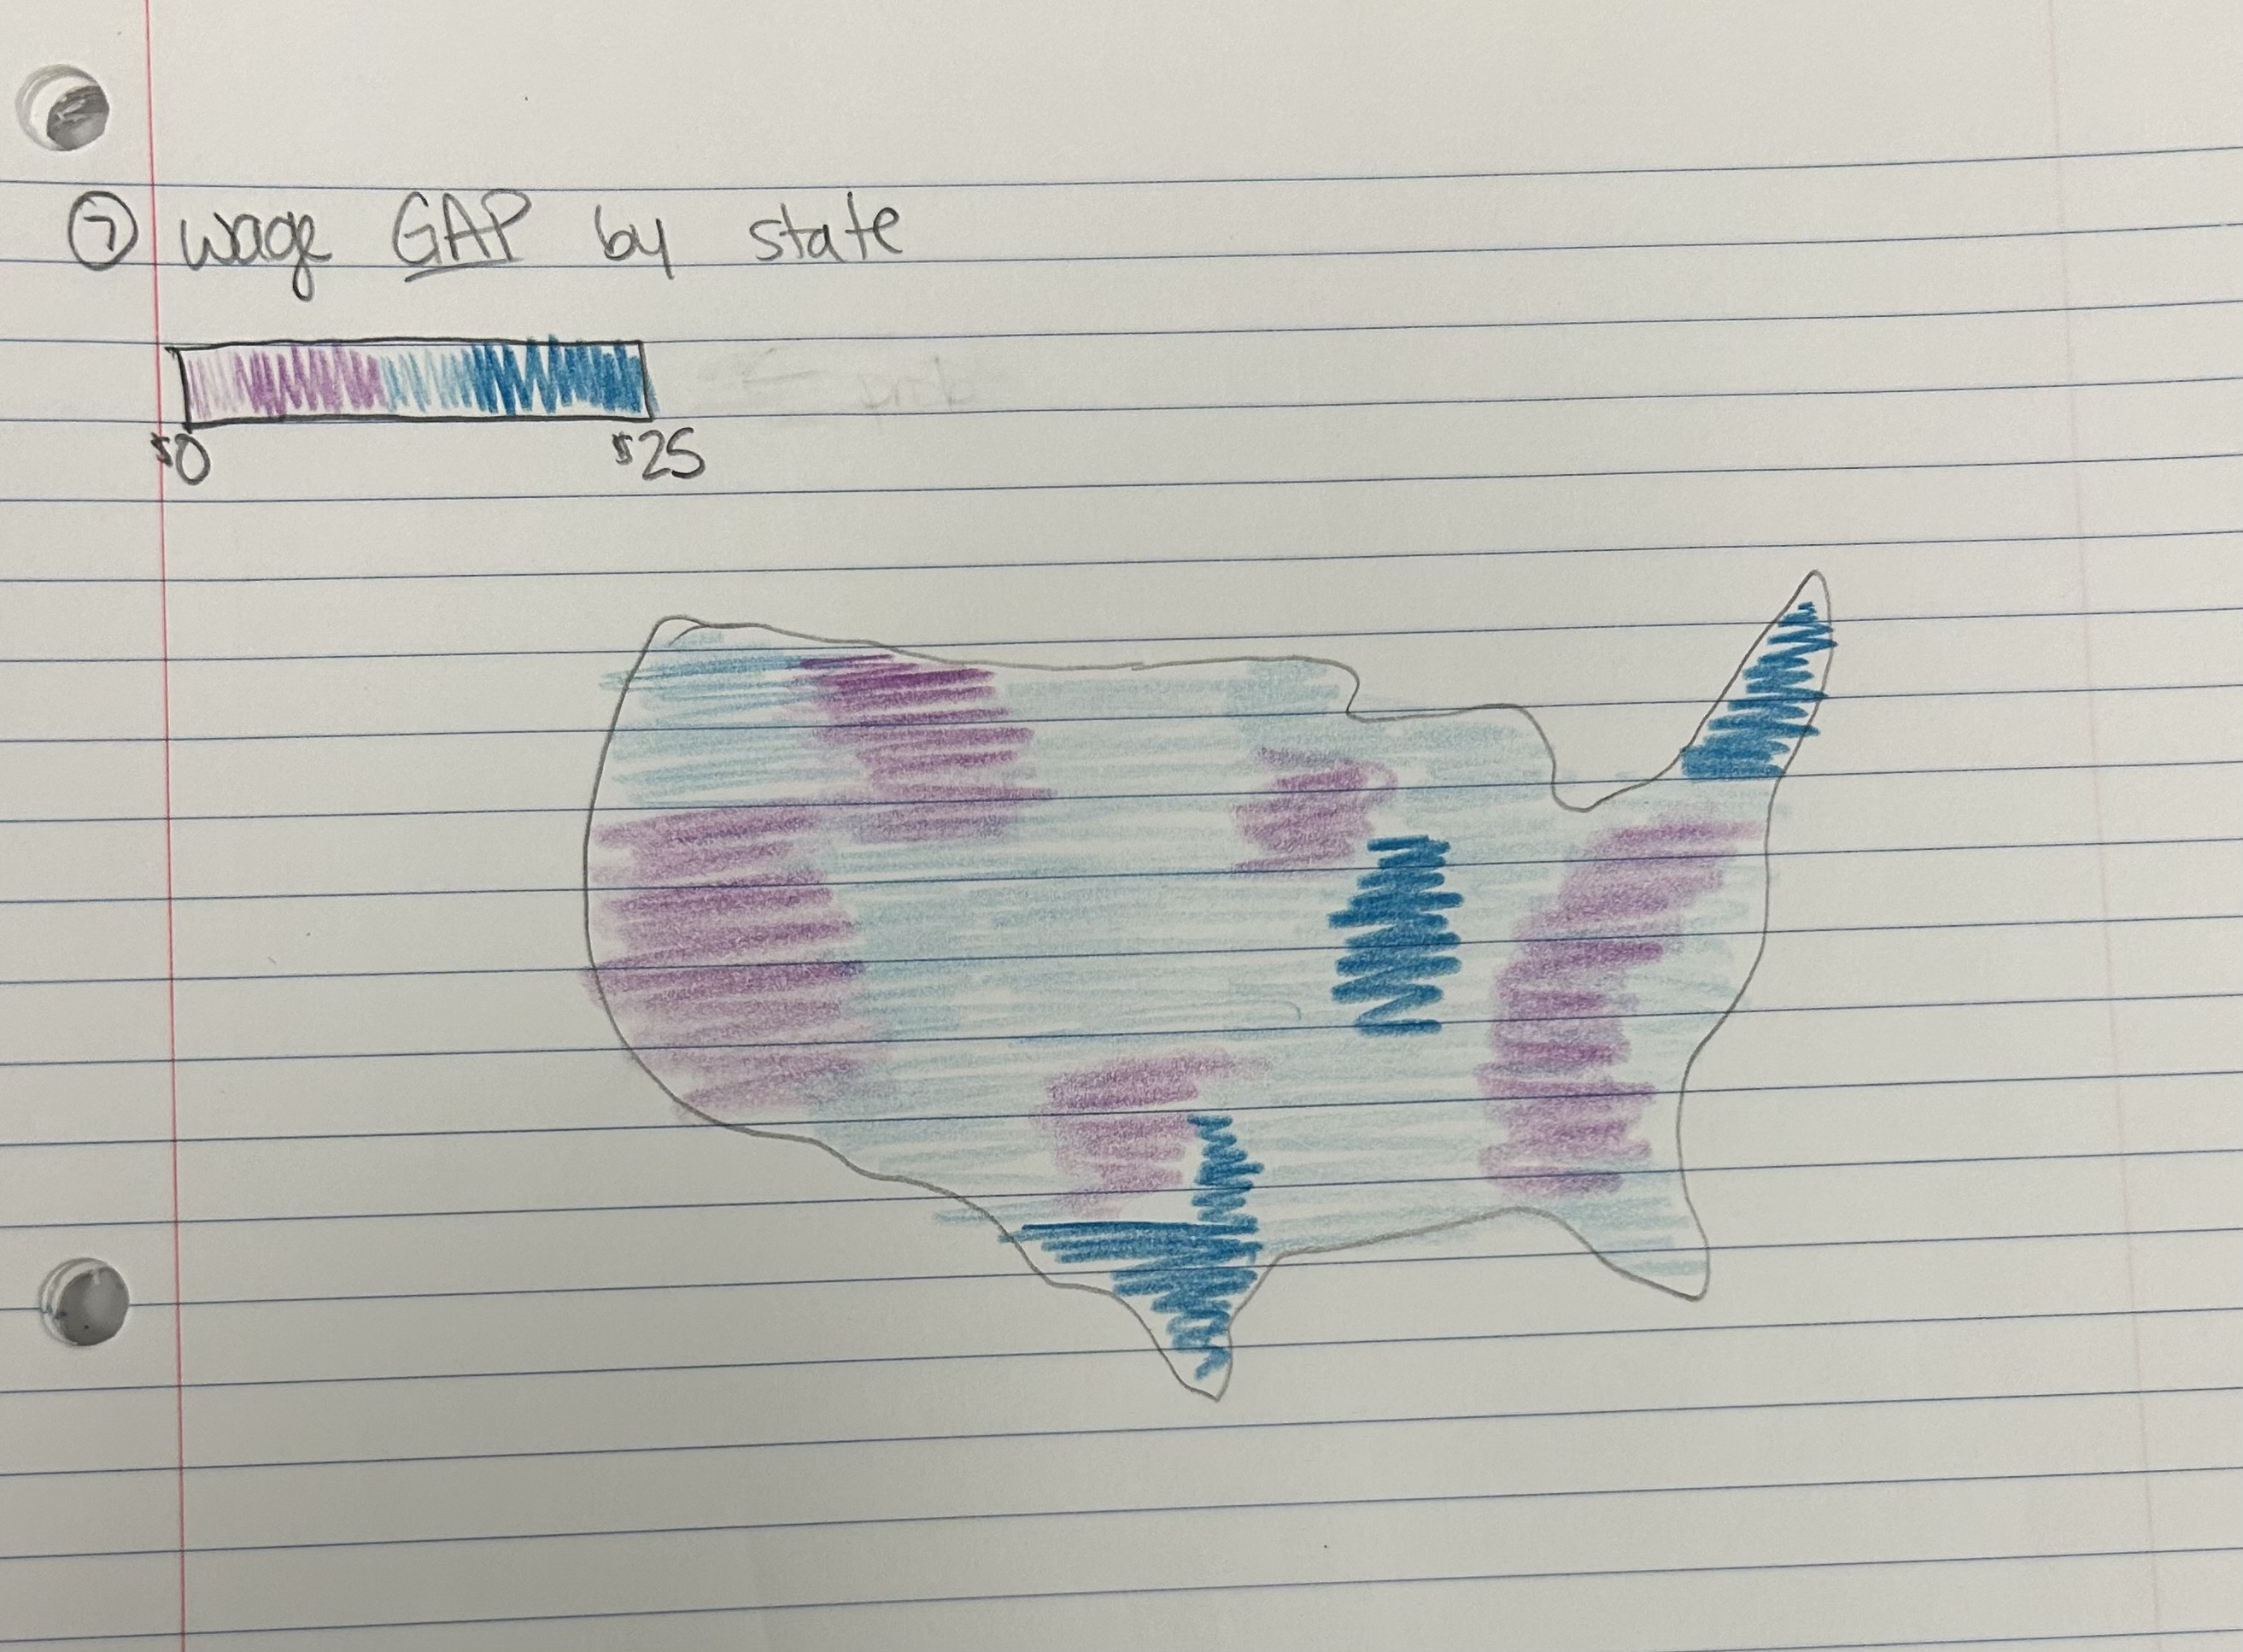 ⑦ wage GAP by state
$0 $25